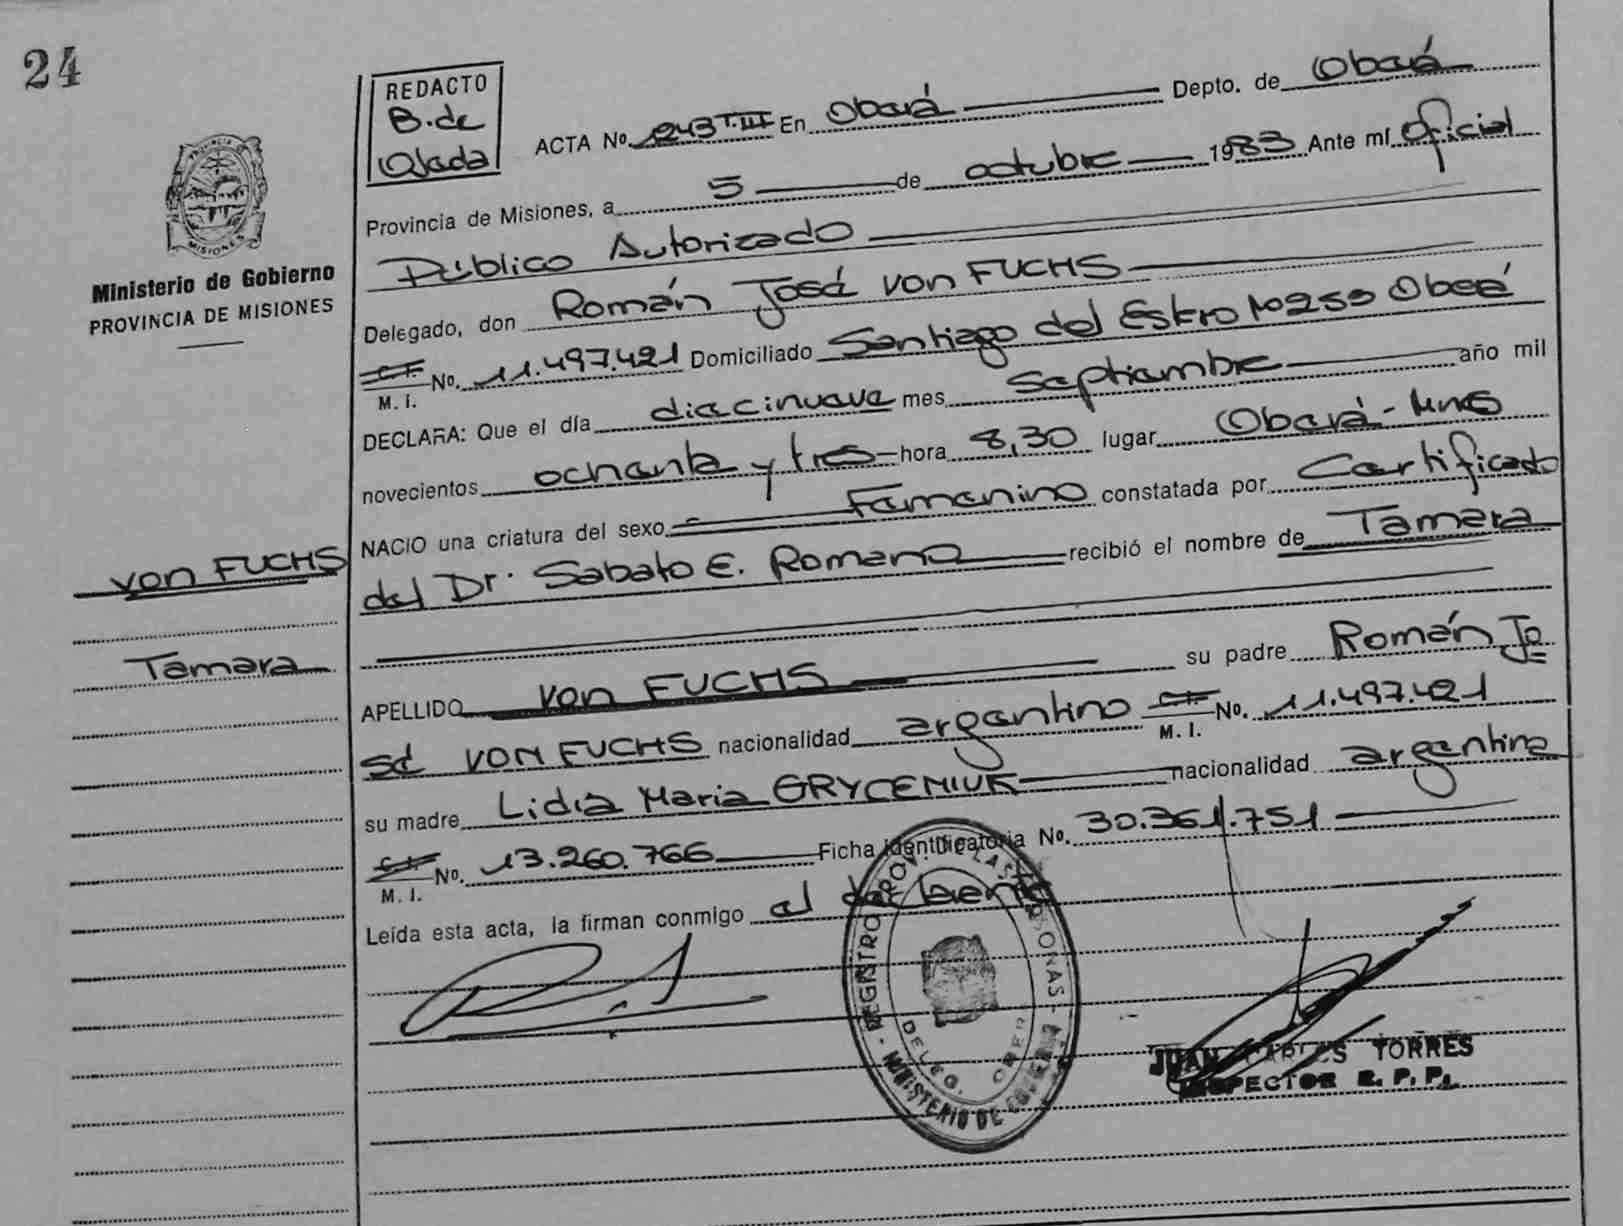 24
REDACTO
B. de
Ojeda
ACTA No. 1243 T.III En Oberá Depto. de Oberá
Provincia de Misiones, a 5 de octubre 1983 Ante mí Oficial
Público Autorizado
Delegado, don Román José von FUCHS
C.I. No. 11.497.421 Domiciliado Santiago del Estero Nº 253 Oberá
M. I.
DECLARA: Que el día diecinueve mes septiembre año mil
novecientos ochenta y tres hora 8,30 lugar Oberá - Mnes
NACIO una criatura del sexo Femenino constatada por Certificado
del Dr. Sabato E. Romano recibió el nombre de Tamara
APELLIDO von FUCHS su padre Román Jo
sé VON FUCHS nacionalidad argentino C.I. No. 11.497.421
M. I.
su madre Lidia Maria GRYCENIUK nacionalidad argentina
C.I. No. 13.260.766 Ficha Identificatoria No. 30.361.751
M. I.
Leída esta acta, la firman conmigo el declarente
PROVINCIA DE
MISIONES
Ministerio de Gobierno
PROVINCIA DE MISIONES
von FUCHS
Tamara
REGISTRO PROV. DE LAS PERSONAS - MINISTERIO DE GOBIERNO
DELEG. OBERA
JUAN CARLOS TORRES
INSPECTOR R. P. P.